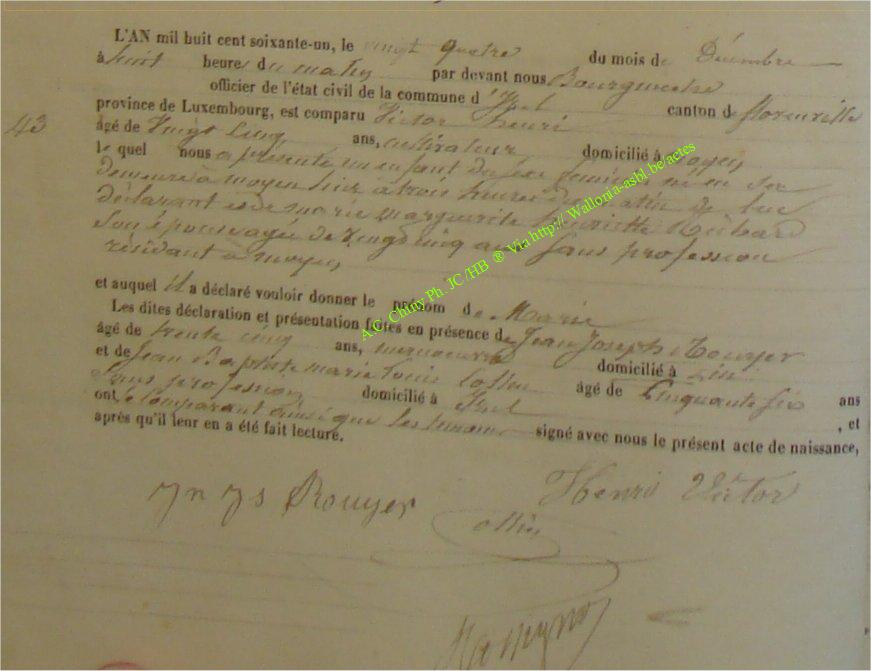 L'AN mil huit cent soixante-un, le vingt quatre du mois de Décembre
à huit heures du matin par devant nous Bourgmestre
officier de l'état civil de la commune d'Izel canton de florenville
43
province de Luxembourg, est comparu Victor henri
âgé de Vingt Cinq ans, cultivateur domicilié à moyen
le quel nous a présenté un enfant du sexe feminin né en sa
demeure à moyen hier à trois heures du matin de lui
déclarant et de marie marguerite henriette
son épouse agée de vingt cinq ans Sans profession
résidant à moyen
et auquel il a déclaré vouloir donner le prénom de Marie
Les dites déclaration et présentation faites en présence de Jean Joseph Rouyer
âgé de trente cinq ans, domicilié à
et de Jean Baptiste marie louis âgé de Cinquante six ans
Sans profession domicilié à Izel , et
ont, le Comparant ainsi que les temoins signé avec nous le présent acte de naissance,
après qu'il leur en a été fait lecture.
Jn Js Rouyer
Henri Victor
A.C. Chiny Ph. JC /HB ® Via http:// Wallonia-asbl.be/actes